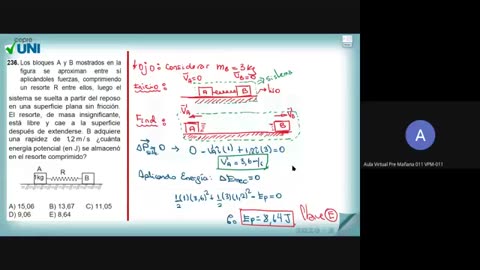 cepre
UNI
236. Los bloques A y B mostrados en la
figura se aproximan entre sí
aplicándoles fuerzas, comprimiendo
un resorte R entre ellos, luego el
sistema se suelta a partir del reposo
en una superficie plana sin fricción.
El resorte, de masa insignificante,
está libre y cae a la superficie
después de extenderse. B adquiere
una rapidez de 1,2 m/s , ¿cuánta
energía potencial (en J) se almacenó
en el resorte comprimido?
A
1kg
R
B
A) 15,06 B) 13,67 C) 11,05
D) 9,06 E) 8,64
Ojo: Considerar mB = 3 kg
VA=0 VB=0
sistema
Inicio:
A B
liso
Final:
VA VB
A B
0 - VA(1) + 1,2(3) = 0
VA = 3,6 m/s
Aplicando Energía: ΔEmec = 0
1/2 (1)(3,6)² + 1/2 (3)(1,2)² - Ep = 0
Ep = 8,64 J
Clave E
A
Aula Virtual Pre Mañana 011 VPM-011